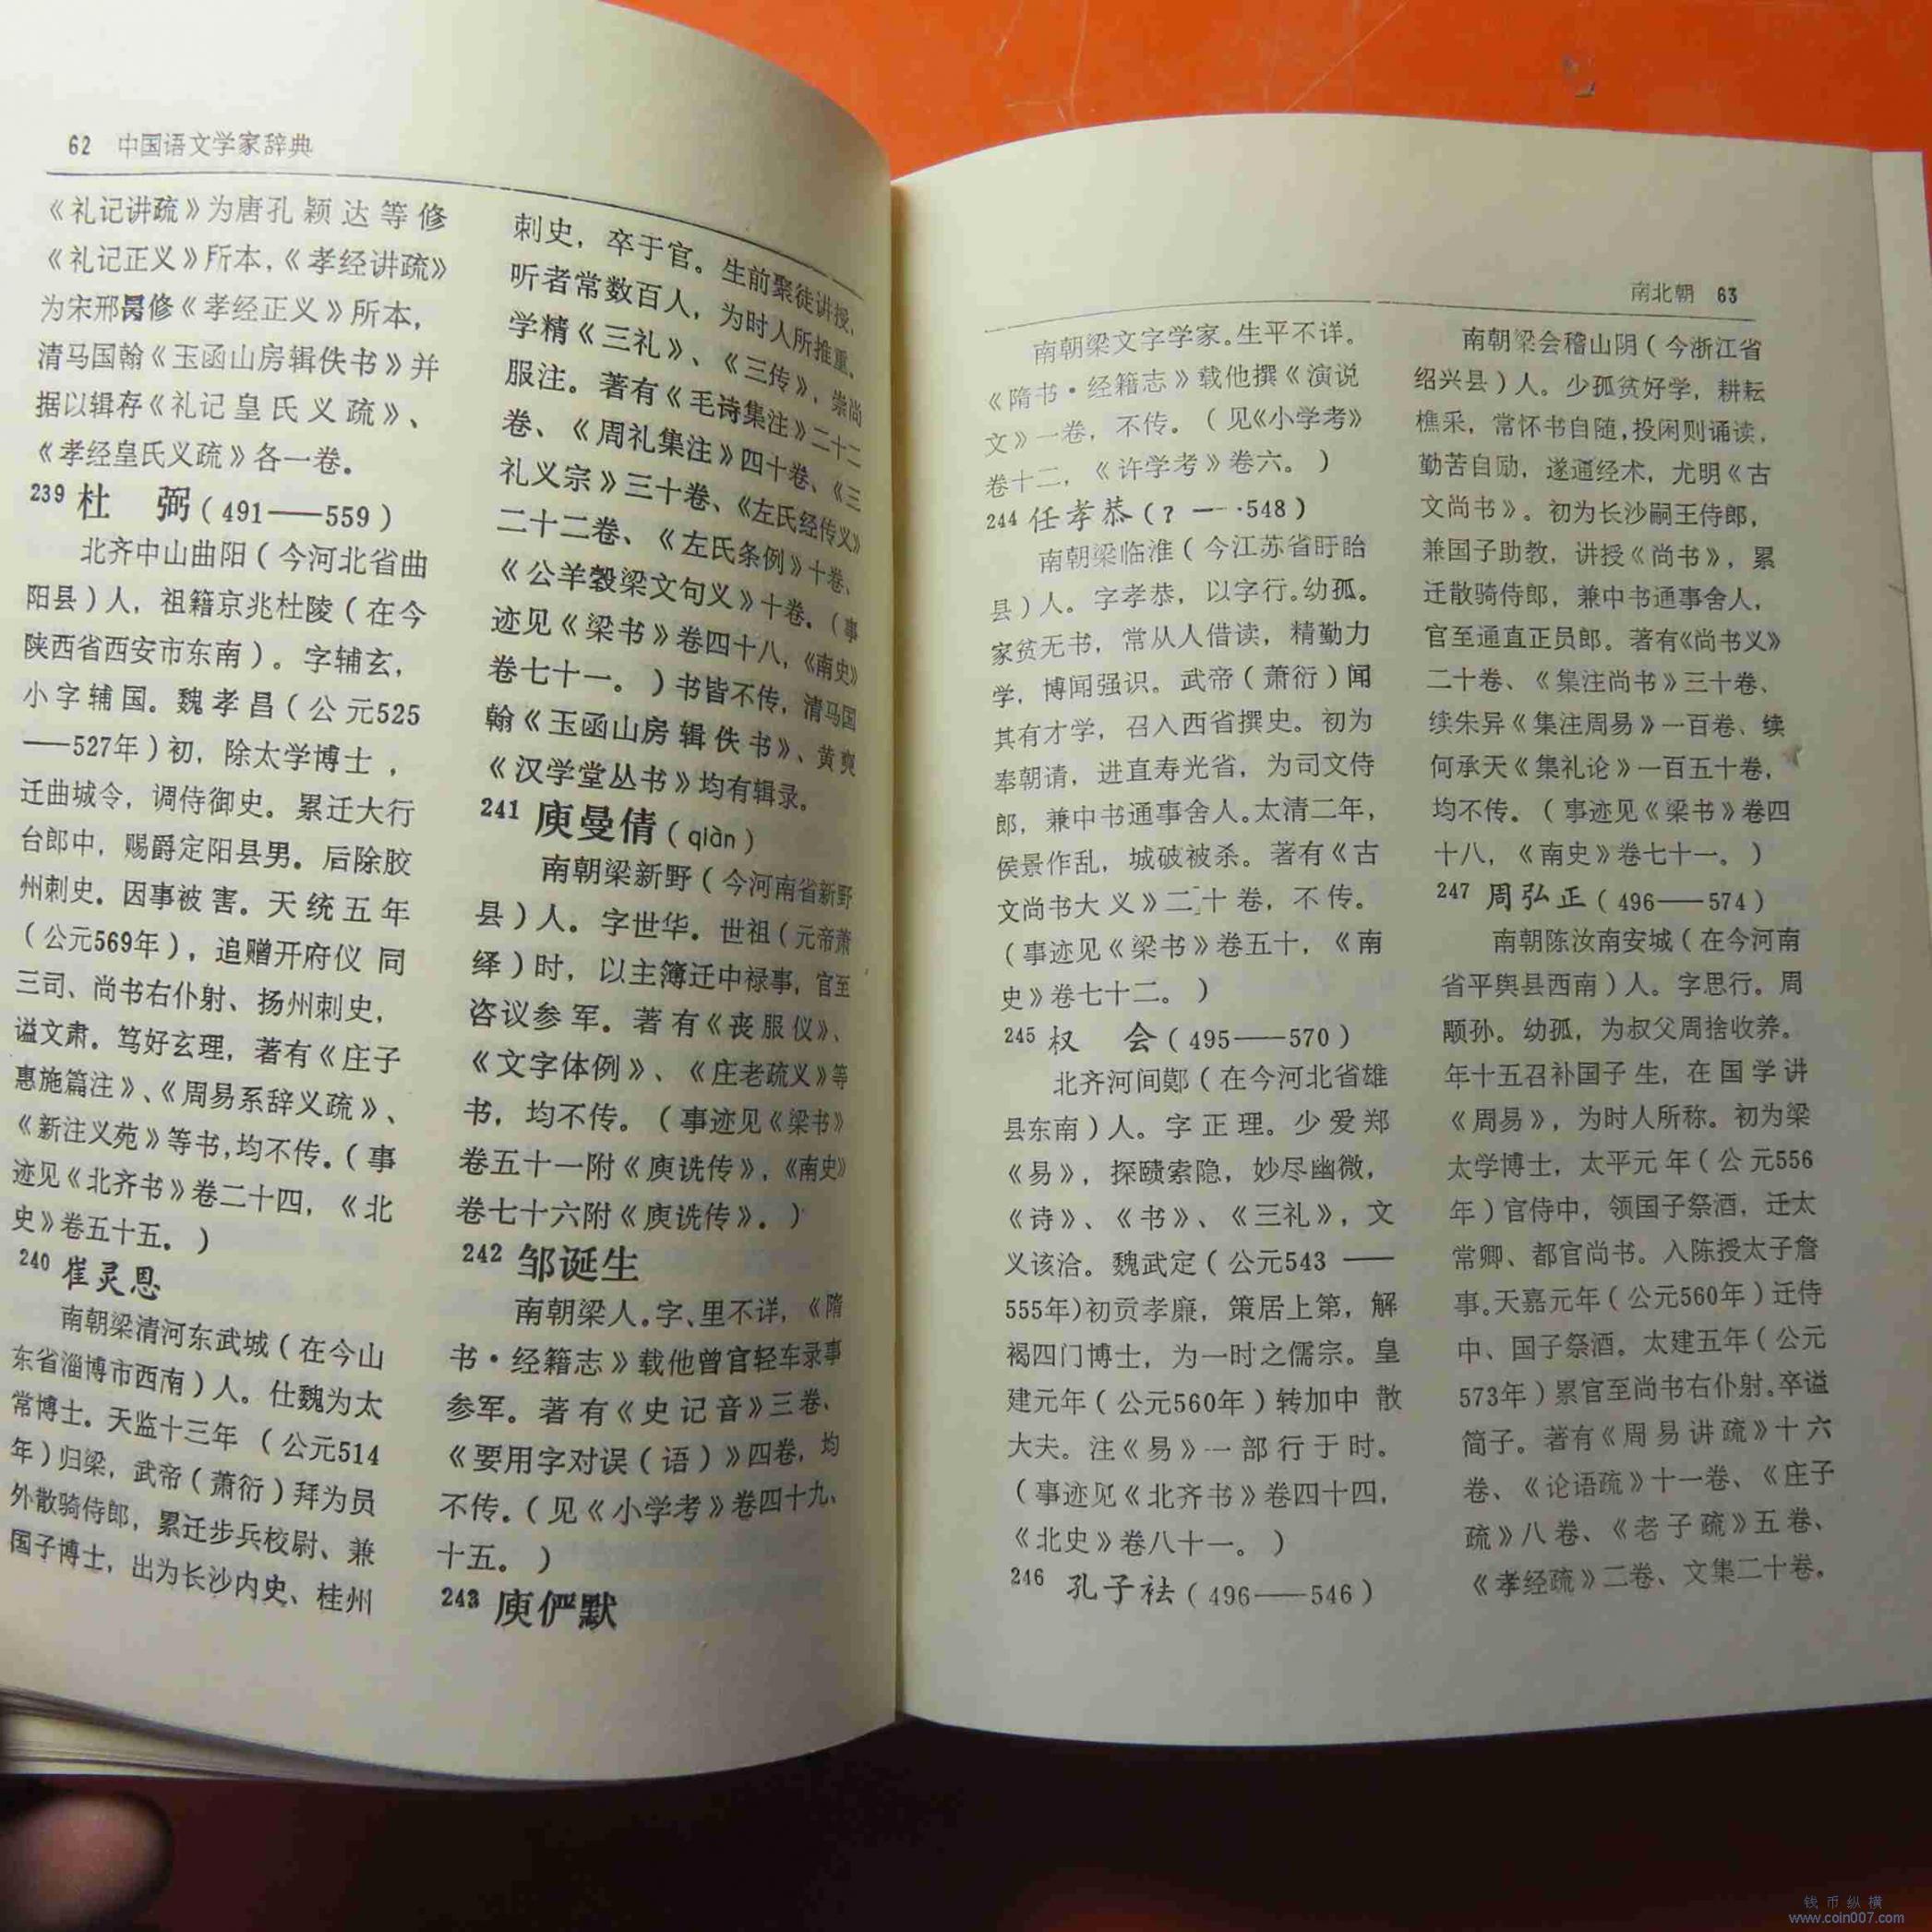 62 中国语文学家辞典
《礼记讲疏》为唐孔颖达等修
《礼记正义》所本，《孝经讲疏》
为宋邢昺修《孝经正义》所本，
清马国翰《玉函山房辑佚书》并
据以辑存《礼记皇氏义疏》、
《孝经皇氏义疏》各一卷。
239 杜 弼（491——559）
北齐中山曲阳（今河北省曲
阳县）人，祖籍京兆杜陵（在今
陕西省西安市东南）。字辅玄，
小字辅国。魏孝昌（公元525
——527年）初，除太学博士，
迁曲城令，调侍御史。累迁大行
台郎中，赐爵定阳县男。后除胶
州刺史。因事被害。天统五年
（公元569年），追赠开府仪同
三司、尚书右仆射、扬州刺史，
谥文肃。笃好玄理，著有《庄子
惠施篇注》、《周易系辞义疏》、
《新注义苑》等书，均不传。（事
迹见《北齐书》卷二十四，《北
史》卷五十五。）
240 崔灵恩
南朝梁清河东武城（在今山
东省淄博市西南）人。仕魏为太
常博士。天监十三年（公元514
年）归梁，武帝（萧衍）拜为员
外散骑侍郎，累迁步兵校尉、兼
国子博士，出为长沙内史、桂州
刺史，卒于官。生前聚徒讲授，
听者常数百人，为时人所推重。
学精《三礼》、《三传》，崇尚
服注。著有《毛诗集注》二十二
卷、《周礼集注》四十卷、《三
礼义宗》三十卷、《左氏经传义》
二十二卷、《左氏条例》十卷、
《公羊穀梁文句义》十卷。（事
迹见《梁书》卷四十八，《南史》
卷七十一。）书皆不传，清马国
翰《玉函山房辑佚书》、黄奭
《汉学堂丛书》均有辑录。
241 庾曼倩（qiàn）
南朝梁新野（今河南省新野
县）人。字世华。世祖（元帝萧
绎）时，以主簿迁中禄事，官至
咨议参军。著有《丧服仪》、
《文字体例》、《庄老疏义》等
书，均不传。（事迹见《梁书》
卷五十一附《庾诜传》，《南史》
卷七十六附《庾诜传》。）
242 邹诞生
南朝梁人。字、里不详，《隋
书·经籍志》载他曾官轻车录事
参军。著有《史记音》三卷、
《要用字对误（语）》四卷，均
不传。（见《小学考》卷四十九、
十五。）
243 庾俨默
南北朝 63
南朝梁文字学家。生平不详。
《隋书·经籍志》载他撰《演说
文》一卷，不传。（见《小学考》
卷十二，《许学考》卷六。）
244 任孝恭（？——548）
南朝梁临淮（今江苏省盱眙
县）人。字孝恭，以字行。幼孤。
家贫无书，常从人借读，精勤力
学，博闻强识。武帝（萧衍）闻
其有才学，召入西省撰史。初为
奉朝请，进直寿光省，为司文侍
郎，兼中书通事舍人。太清二年，
侯景作乱，城破被杀。著有《古
文尚书大义》二十卷，不传。
（事迹见《梁书》卷五十，《南
史》卷七十二。）
245 权 会（495——570）
北齐河间鄚（在今河北省雄
县东南）人。字正理。少爱郑
《易》，探赜索隐，妙尽幽微，
《诗》、《书》、《三礼》，文
义该洽。魏武定（公元543——
555年)初贡孝廉，策居上第，解
褐四门博士，为一时之儒宗。皇
建元年（公元560年）转加中散
大夫。注《易》一部行于时。
（事迹见《北齐书》卷四十四，
《北史》卷八十一。）
246 孔子袪（496——546）
南朝梁会稽山阴（今浙江省
绍兴县）人。少孤贫好学，耕耘
樵采，常怀书自随，投闲则诵读，
勤苦自励，遂通经术，尤明《古
文尚书》。初为长沙嗣王侍郎，
兼国子助教，讲授《尚书》，累
迁散骑侍郎，兼中书通事舍人，
官至通直正员郎。著有《尚书义》
二十卷、《集注尚书》三十卷、
续朱异《集注周易》一百卷、续
何承天《集礼论》一百五十卷，
均不传。（事迹见《梁书》卷四
十八，《南史》卷七十一。）
247 周弘正（496——574）
南朝陈汝南安城（在今河南
省平舆县西南）人。字思行。周
颙孙。幼孤，为叔父周捨收养。
年十五召补国子生，在国学讲
《周易》，为时人所称。初为梁
太学博士，太平元年（公元556
年）官侍中，领国子祭酒，迁太
常卿、都官尚书。入陈授太子詹
事。天嘉元年（公元560年）迁侍
中、国子祭酒。太建五年（公元
573年）累官至尚书右仆射。卒谥
简子。著有《周易讲疏》十六
卷、《论语疏》十一卷、《庄子
疏》八卷、《老子疏》五卷、
《孝经疏》二卷、文集二十卷。
钱币纵横
www.coin007.com